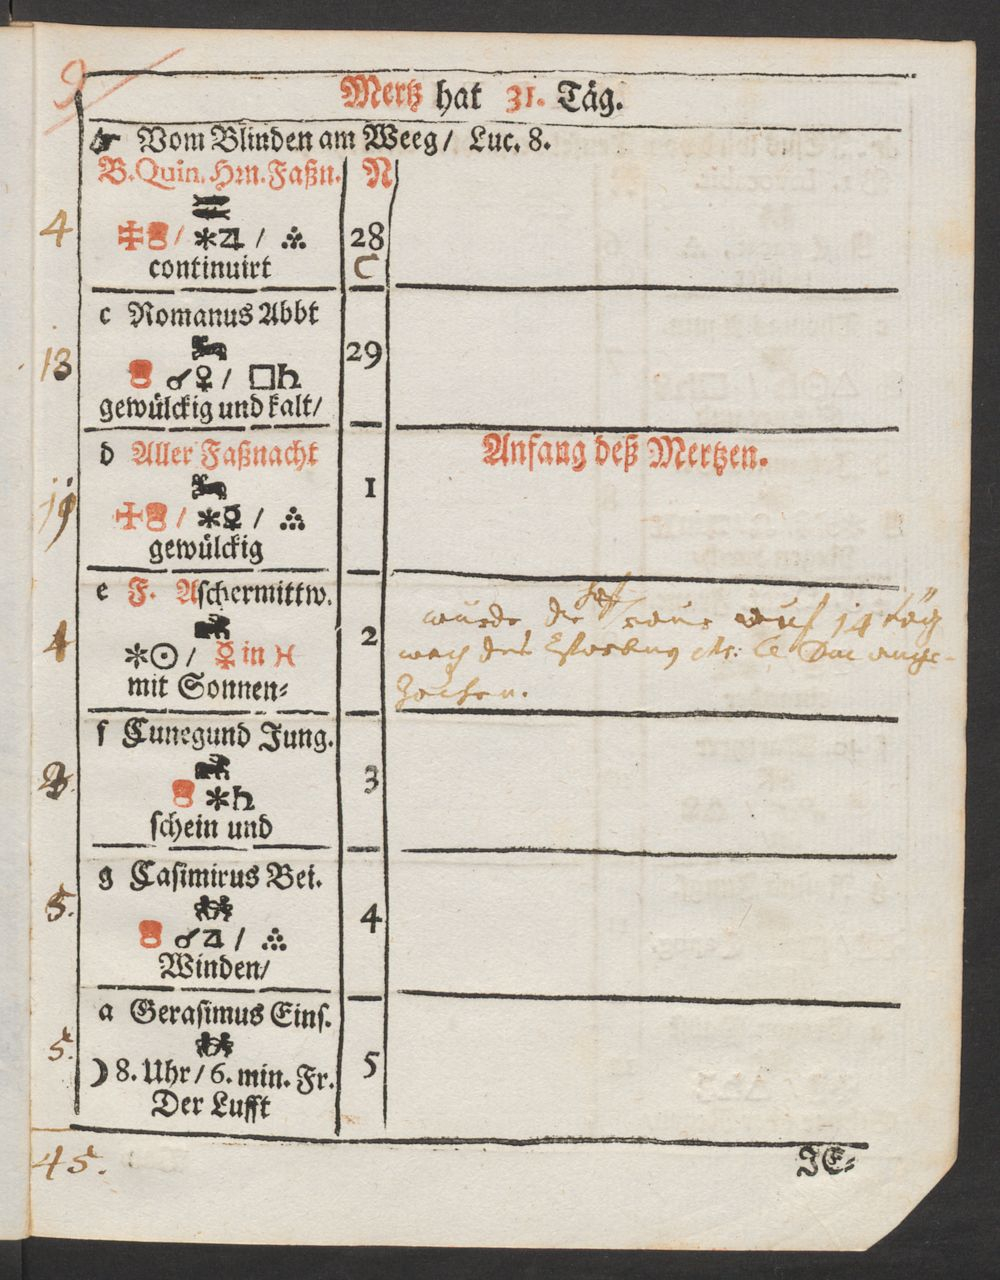 9
Mertz hat 31. Täg.
Vom Blinden am Weeg/ Luc. 8.
B. Quin. Hrn. Faßn. N
4
/ ⚹♃ / 28
continuirt C
c Romanus Abbt
13 29
☌♀ / □♄
gewülckig und kalt/
d Aller Faßnacht Anfang deß Mertzen.
1
/ ⚹☿ /
gewülckig
e F. Aschermittw.
wurde auf 14 täg
4 ⚹☉ / ☿ in ♓ 2
mit Sonnen⸗
f Cunegund Jung.
3
⚹♄
schein und
g Casimirus Bei.
5. 4
☌♃ /
Winden/
a Gerasimus Eins.
5. 5
☽ 8. Uhr / 6. min. Fr.
Der Lufft
45. JE⸗